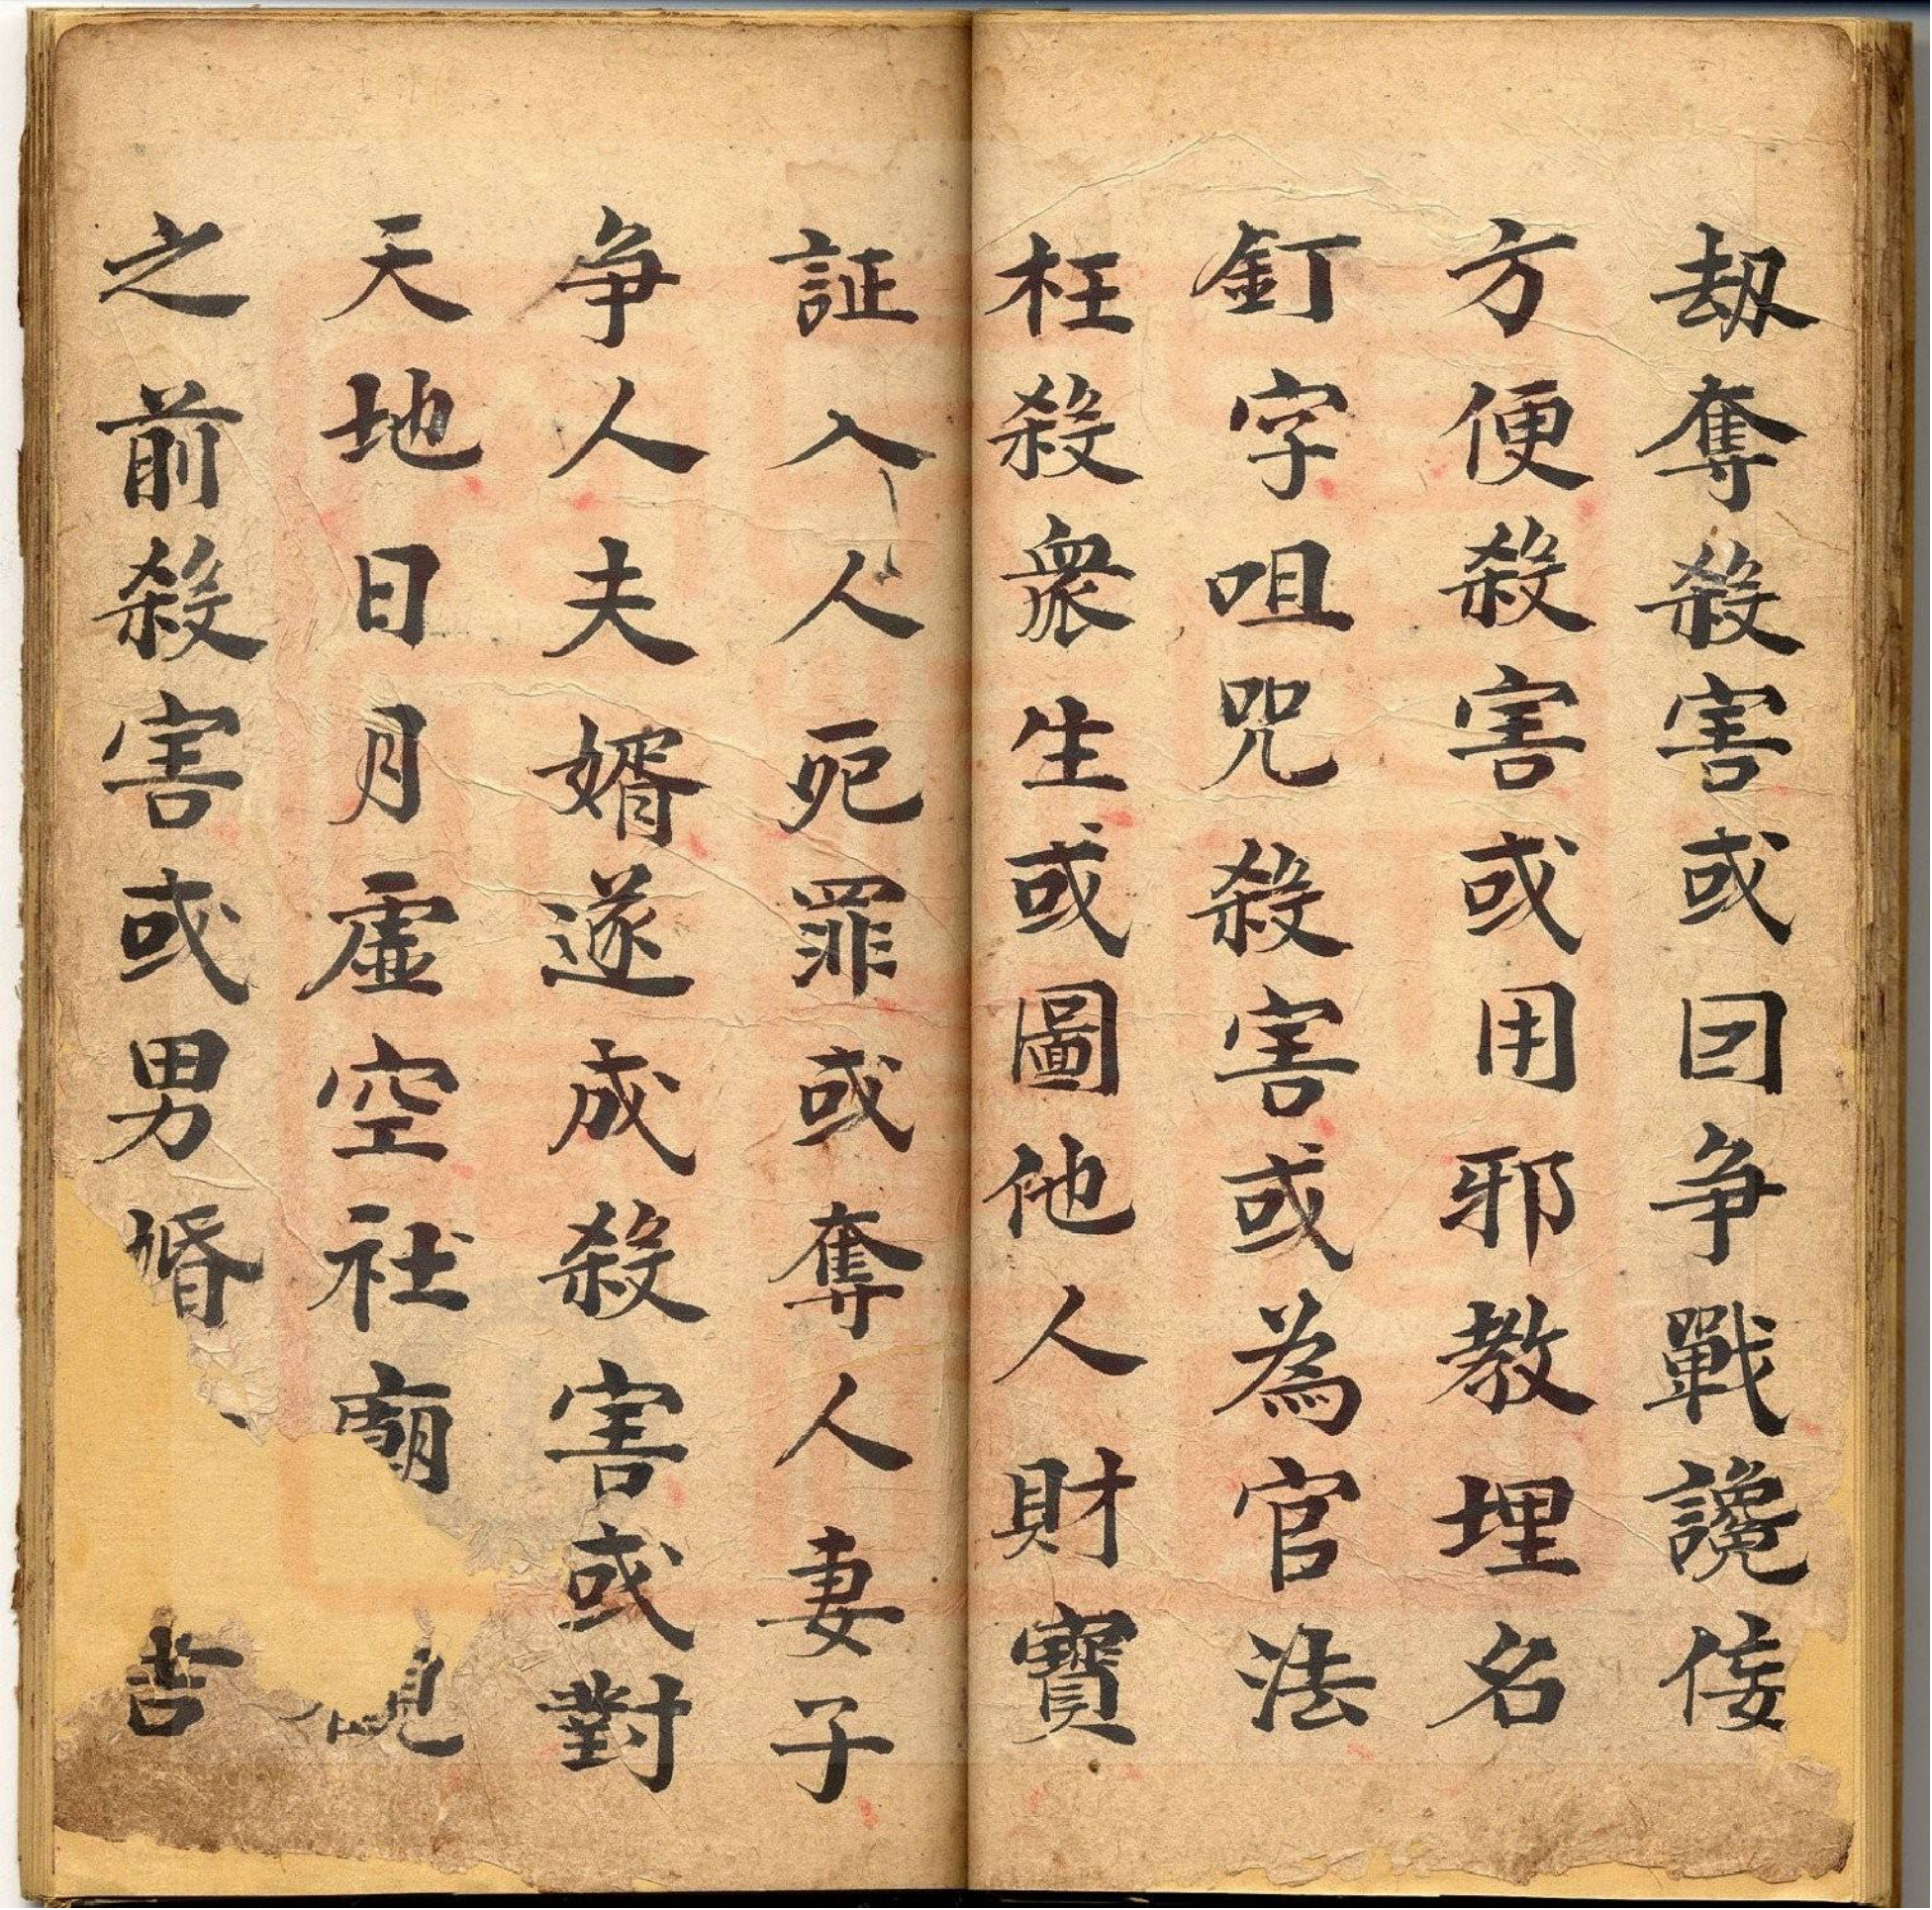 刼奪殺害或因争戰讒佞
方便殺害或用邪教埋名
釘字咀咒殺害或為官法
枉殺衆生或圖他人財寳
証入人死罪或奪人妻子
争人夫婿遂成殺害或對
天地日月虛空社廟
之前殺害或男婚